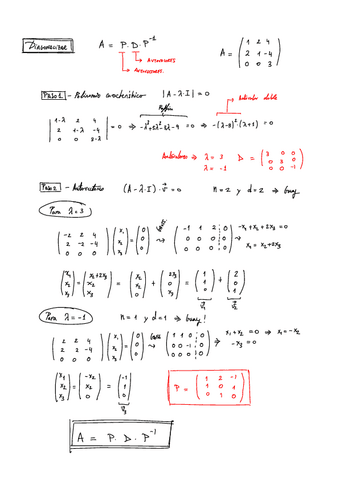 Diagonalizar A = P · D · P⁻¹ A = ( 1 2 4 ; 2 1 -4 ; 0 0 3 )
→ Autovalores
→ Autovectores
Paso 1 - Polinomio característico |A - λ·I| = 0
Ruffini Autovalor doble
| 1-λ 2 4 ; 2 1-λ -4 ; 0 0 3-λ | = 0 ⇒ -λ³+5λ²-3λ-9 = 0 ⇒ -(λ-3)²·(λ+1) = 0
Autovalores → λ = 3 D = ( 3 0 0 ; 0 3 0 ; 0 0 -1 )
λ = -1
Paso 2 - Autovectores (A - λ·I)·v = 0 m = 2 y d = 2 →
Para λ = 3
( -2 2 4 ; 2 -2 -4 ; 0 0 0 ) ( x₁ ; x₂ ; x₃ ) = ( 0 ; 0 ; 0 ) Gauss → ( -1 1 2 0 ; 0 0 0 0 ; 0 0 0 0 ) → -x₁ + x₂ + 2x₃ = 0
x₁ = x₂ + 2x₃
( x₁ ; x₂ ; x₃ ) = ( x₂+2x₃ ; x₂ ; x₃ ) = ( x₂ ; x₂ ; 0 ) + ( 2x₃ ; 0 ; x₃ ) = ( 1 ; 1 ; 0 ) + ( 2 ; 0 ; 1 )
v₁ v₂
Para λ = -1 m = 1 y d = 1 → !
( 2 2 4 ; 2 2 -4 ; 0 0 4 ) ( x₁ ; x₂ ; x₃ ) = ( 0 ; 0 ; 0 ) Gauss → ( 1 1 0 0 ; 0 0 -1 0 ; 0 0 0 0 ) ⇒ x₁ + x₂ = 0 ⇒ x₁ = -x₂
-x₃ = 0
( x₁ ; x₂ ; x₃ ) = ( -x₂ ; x₂ ; 0 ) = ( -1 ; 1 ; 0 ) P = ( 1 2 -1 ; 1 0 1 ; 0 1 0 )
v₃
A = P · D · P⁻¹